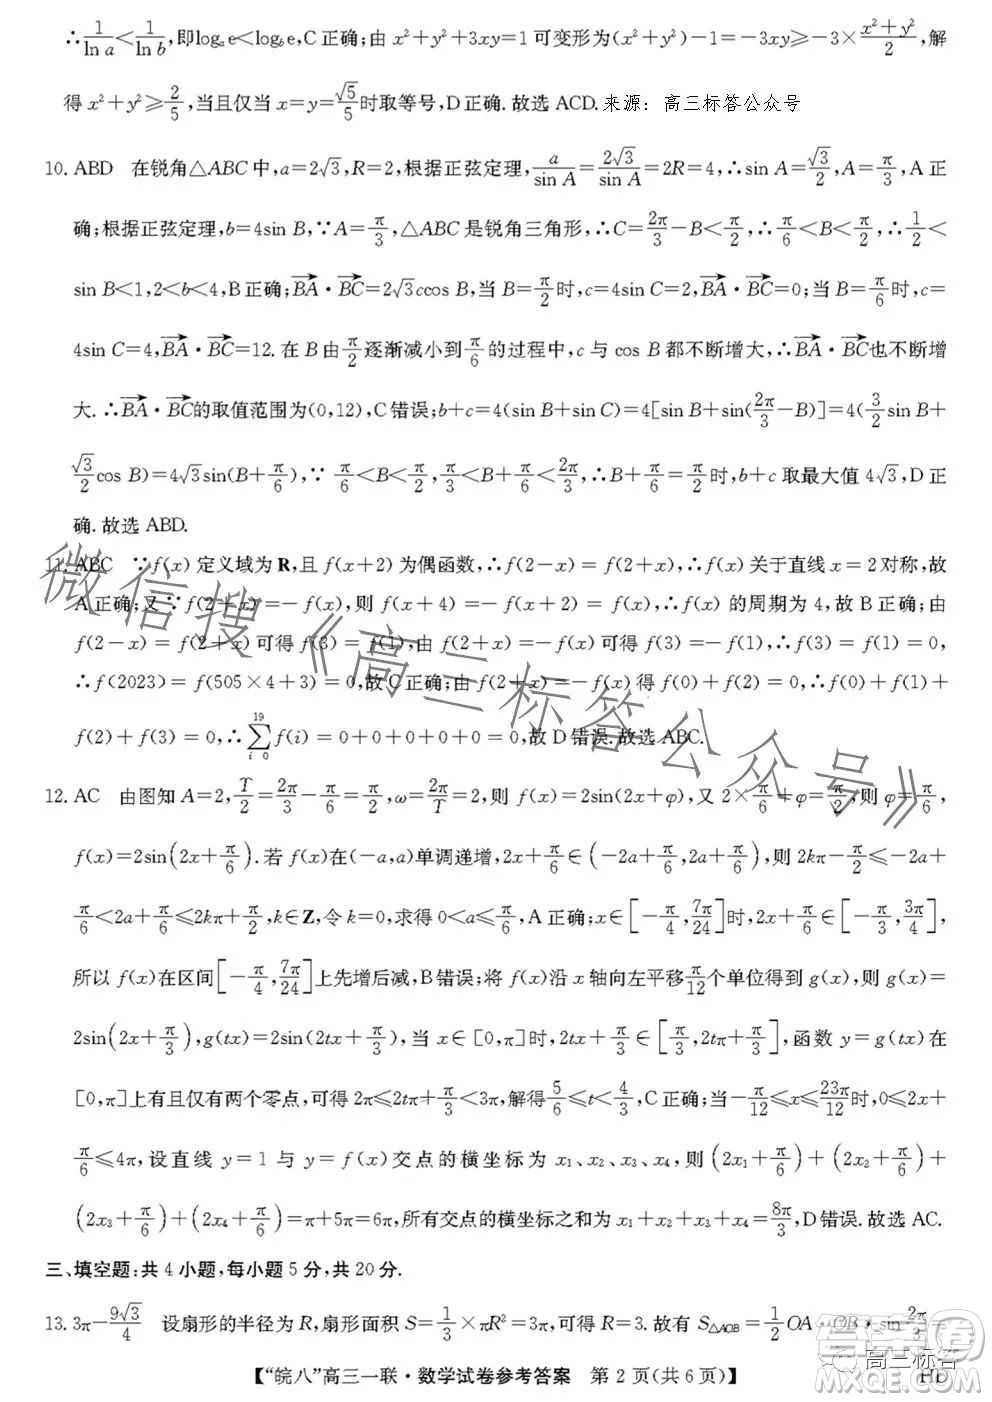 ∴1/ln a<1/ln b,即logₐe<log_b e,C正确;由x²+y²+3xy=1可变形为(x²+y²)-1=-3xy≥-3×(x²+y²)/2,解
得x²+y²≥2/5,当且仅当x=y=√5/5时取等号,D正确.故选ACD.来源：高三标答公众号
10. ABD 在锐角△ABC中,a=2√3,R=2,根据正弦定理,a/sin A=2√3/sin A=2R=4,∴sin A=√3/2,A=π/3,A正
确;根据正弦定理,b=4sin B,∵A=π/3,△ABC是锐角三角形,∴C=2π/3-B<π/2,∴π/6<B<π/2,∴1/2<
sin B<1,2<b<4,B正确;BA→·BC→=2√3ccos B,当B=π/2时,c=4sin C=2,BA→·BC→=0;当B=π/6时,c=
4sin C=4,BA→·BC→=12.在B由π/2逐渐减小到π/6的过程中,c与cos B都不断增大,∴BA→·BC→也不断增
大.∴BA→·BC→的取值范围为(0,12),C错误;b+c=4(sin B+sin C)=4[sin B+sin(2π/3-B)]=4(3/2 sin B+
√3/2 cos B)=4√3sin(B+π/6),∵π/6<B<π/2,π/3<B+π/6<2π/3,∴当B+π/6=π/2时,b+c取最大值4√3,D正
确.故选ABD.
11. ABC ∵f(x)定义域为R,且f(x+2)为偶函数,∴f(2-x)=f(2+x),∴f(x)关于直线x=2对称,故
A正确;又∵f(2+x)=-f(x),则f(x+4)=-f(x+2)=f(x),∴f(x)的周期为4,故B正确;由
f(2-x)=f(2+x)可得f(3)=f(1),由f(2+x)=-f(x)可得f(3)=-f(1),∴f(3)=f(1)=0,
∴f(2023)=f(505×4+3)=0,故C正确;由f(2+x)=-f(x)得f(0)+f(2)=0,∴f(0)+f(1)+
f(2)+f(3)=0,∴∑(i=0,19)f(i)=0+0+0+0+0=0,故D错误.故选ABC.
12. AC 由图知A=2,T/2=2π/3-π/6=π/2,ω=2π/T=2,则f(x)=2sin(2x+φ),又2×π/6+φ=π/2,则φ=π/6,
f(x)=2sin(2x+π/6).若f(x)在(-a,a)单调递增,2x+π/6∈(-2a+π/6,2a+π/6),则2kπ-π/2≤-2a+
π/6<2a+π/6≤2kπ+π/2,k∈Z,令k=0,求得0<a≤π/6,A正确;x∈[-π/4,7π/24]时,2x+π/6∈[-π/3,3π/4],
所以f(x)在区间[-π/4,7π/24]上先增后减,B错误;将f(x)沿x轴向左平移π/12个单位得到g(x),则g(x)=
2sin(2x+π/3),g(tx)=2sin(2tx+π/3),当x∈[0,π]时,2tx+π/3∈[π/3,2tπ+π/3],函数y=g(tx)在
[0,π]上有且仅有两个零点,可得2π≤2tπ+π/3<3π,解得5/6≤t<4/3,C正确;当-π/12≤x≤23π/12时,0≤2x+
π/6≤4π,设直线y=1与y=f(x)交点的横坐标为x₁、x₂、x₃、x₄,则(2x₁+π/6)+(2x₂+π/6)+
(2x₃+π/6)+(2x₄+π/6)=π+5π=6π,所有交点的横坐标之和为x₁+x₂+x₃+x₄=8π/3,D错误.故选AC.
三、填空题:共4小题,每小题5分,共20分.
13. 3π-9√3/4 设扇形的半径为R,扇形面积S=1/3×πR²=3π,可得R=3.故有S△AOB=1/2 OA·OB·sin 2π/3=
【“皖八”高三一联·数学试卷参考答案 第2页(共6页)】 HD
微信搜《高三标答公众号》
高三标答
答案圈